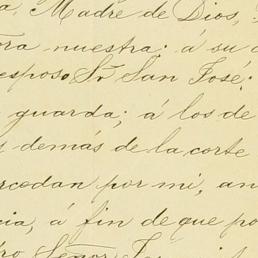 a, Madre de Dios,
ora nuestra; á su c
esposo Sr. San José;
guarda; á los de
s demás de la corte
rcodan por mi, an
cia, á fin de que po
ro Señor